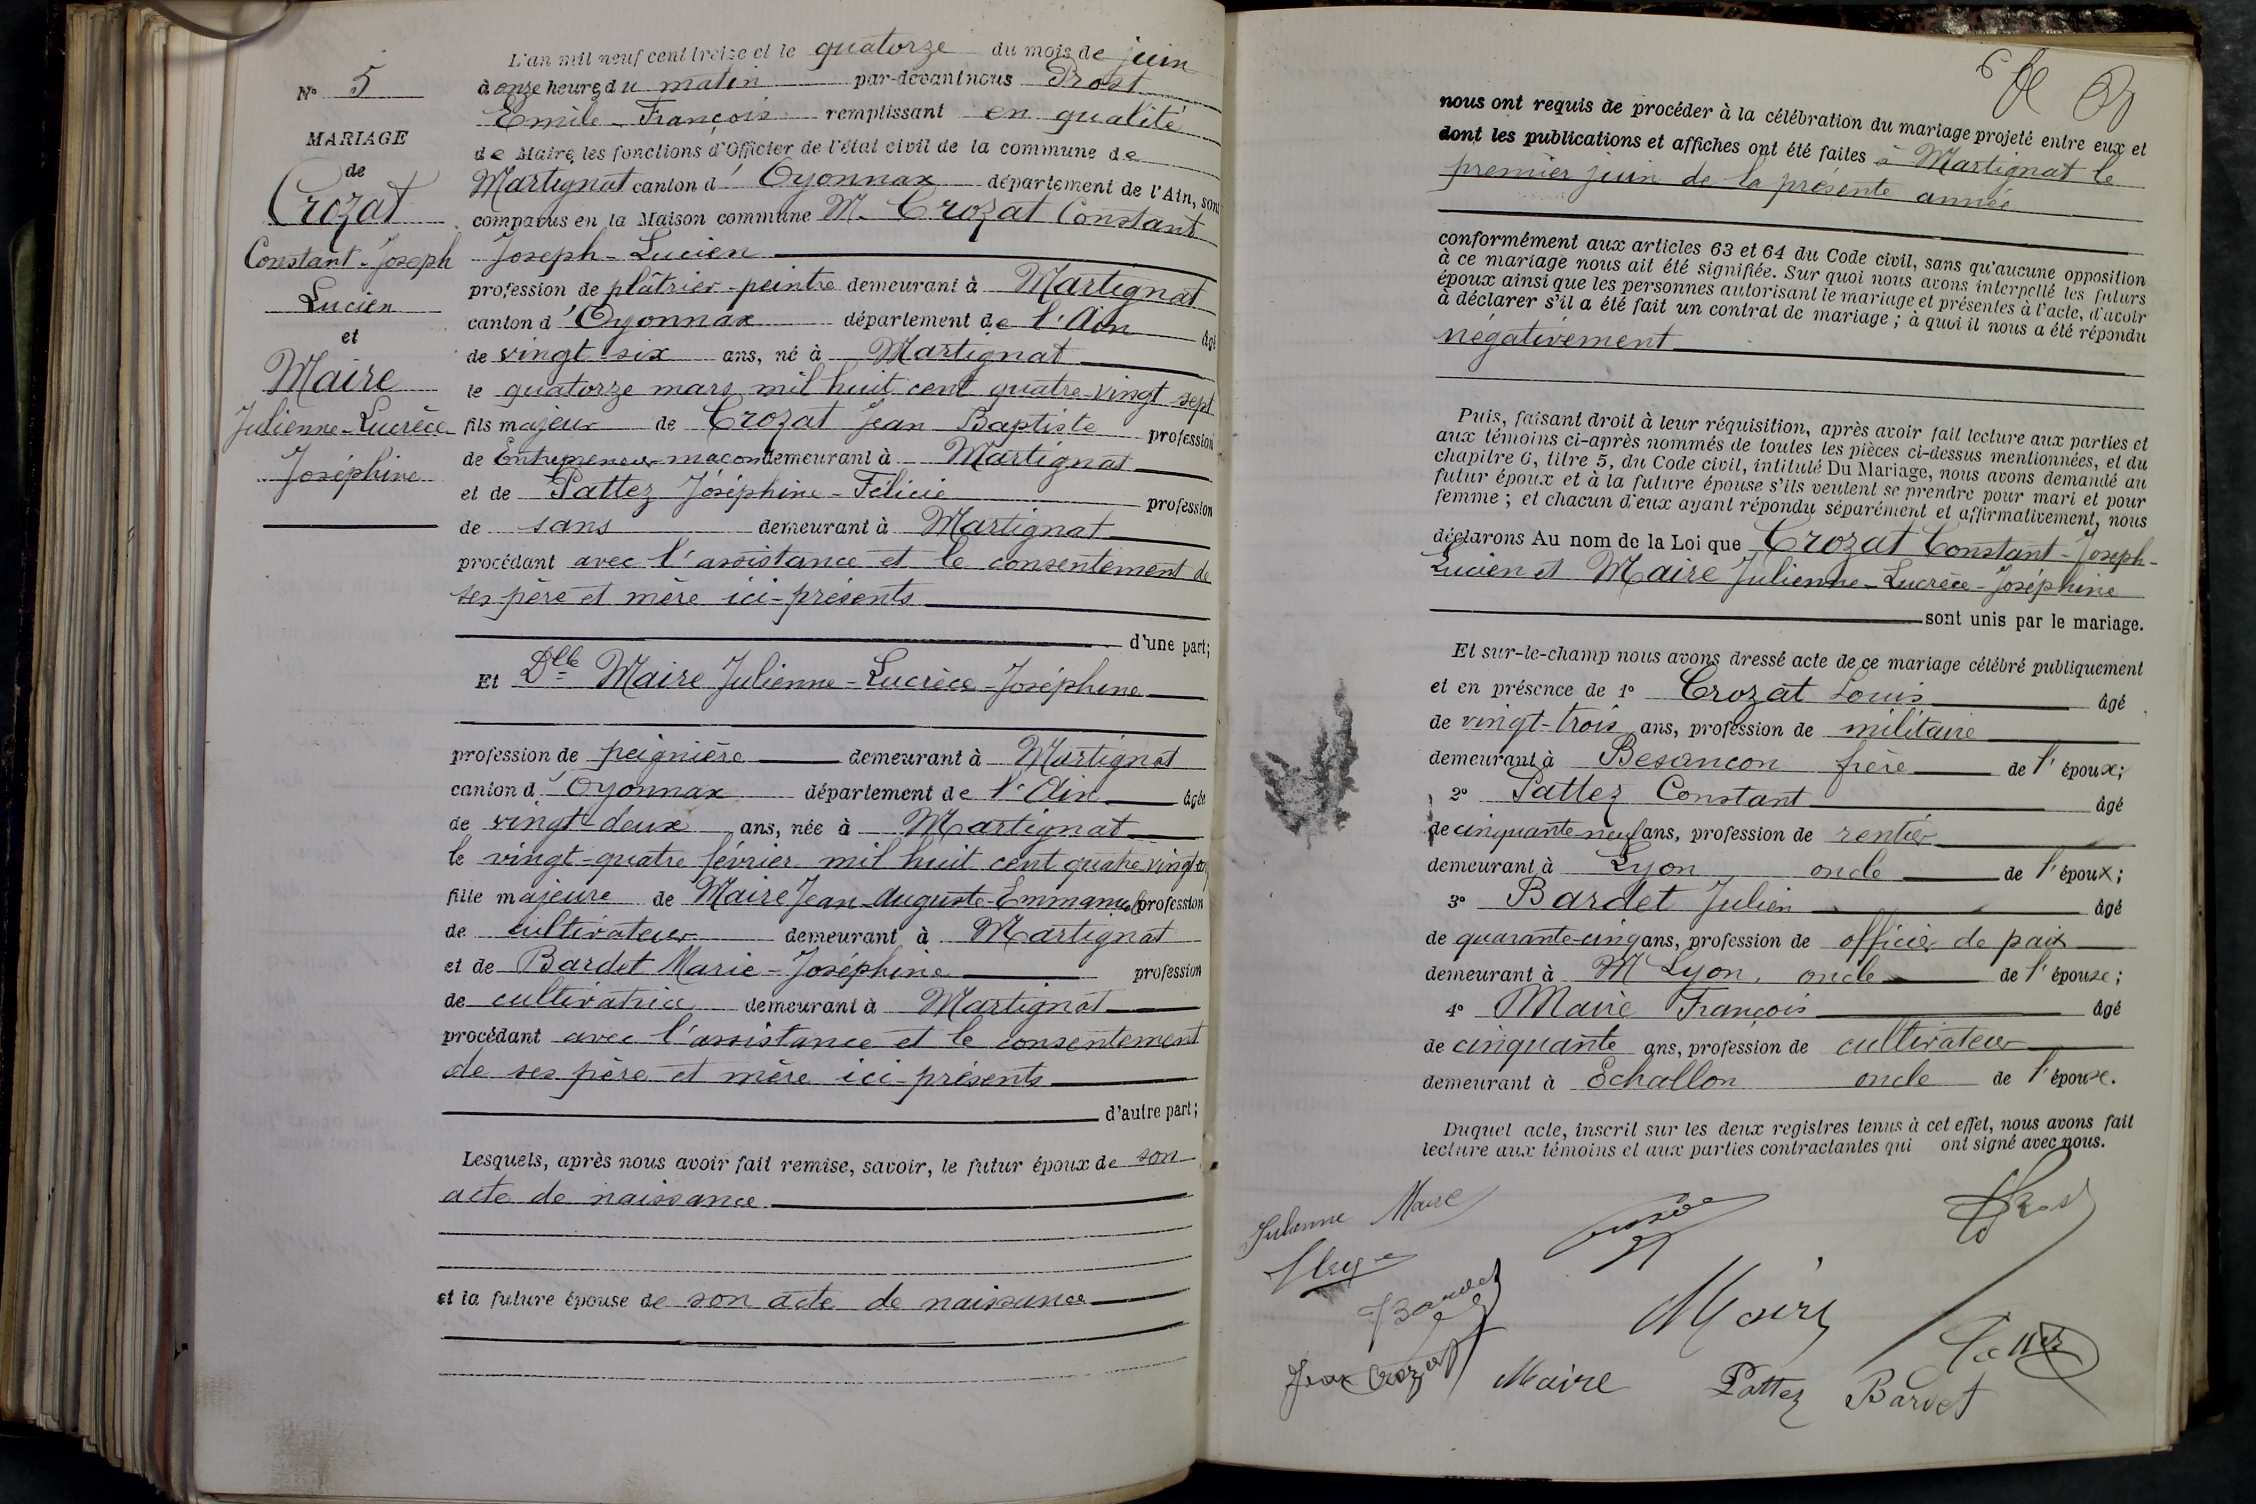 N° 5
MARIAGE
de
Crozat
Constant-Joseph
Lucien
et
Maire
Julienne-Lucrèce
Joséphine
L'an mil neuf cent treize et le quatorze du mois de juin
à onze heures du matin par-devant nous Prost
Emile-François remplissant en qualité
de Maire, les fonctions d'Officier de l'état civil de la commune de
Martignat canton d'Oyonnax département de l'Ain, sont
comparus en la Maison commune M. Crozat Constant
Joseph-Lucien
profession de plâtrier-peintre demeurant à Martignat
canton d'Oyonnax département de l'Ain âgé
de vingt six ans, né à Martignat
le quatorze mars mil huit cent quatre-vingt sept
fils majeur de Crozat Jean Baptiste profession
de Entrepreneur maçon demeurant à Martignat
et de Pattez Joséphine-Félicie profession
de sans demeurant à Martignat
procédant avec l'assistance et le consentement de
ses père et mère ici-présents
d'une part;
Et Dlle Maire Julienne-Lucrèce-Joséphine
profession de peignière demeurant à Martignat
canton d'Oyonnax département de l'Ain âgée
de vingt-deux ans, née à Martignat
le vingt-quatre février mil huit cent quatre vingt onze
fille majeure de Maire Jean-Auguste-Emmanuel profession
de cultivateur demeurant à Martignat
et de Bardet Marie-Joséphine profession
de cultivatrice demeurant à Martignat
procédant avec l'assistance et le consentement
de ses père et mère ici-présents
d'autre part;
Lesquels, après nous avoir fait remise, savoir, le futur époux de son
acte de naissance
et la future épouse de son acte de naissance
nous ont requis de procéder à la célébration du mariage projeté entre eux et
dont les publications et affiches ont été faites à Martignat le
premier juin de la présente année
conformément aux articles 63 et 64 du Code civil, sans qu'aucune opposition
à ce mariage nous ait été signifiée. Sur quoi nous avons interpellé les futurs
époux ainsi que les personnes autorisant le mariage et présentes à l'acte, d'avoir
à déclarer s'il a été fait un contrat de mariage; à quoi il nous a été répondu
négativement
Puis, faisant droit à leur réquisition, après avoir fait lecture aux parties et
aux témoins ci-après nommés de toutes les pièces ci-dessus mentionnées, et du
chapitre 6, titre 5, du Code civil, intitulé Du Mariage, nous avons demandé au
futur époux et à la future épouse s'ils veulent se prendre pour mari et pour
femme; et chacun d'eux ayant répondu séparément et affirmativement, nous
déclarons Au nom de la Loi que Crozat Constant-Joseph-
Lucien et Maire Julienne-Lucrèce-Joséphine
sont unis par le mariage.
Et sur-le-champ nous avons dressé acte de ce mariage célébré publiquement
et en présence de 1° Crozat Louis âgé
de vingt-trois ans, profession de militaire
demeurant à Besançon frère de l'époux;
2° Pattez Constant âgé
de cinquante neuf ans, profession de rentier
demeurant à Lyon oncle de l'époux;
3° Bardet Julien âgé
de quarante-cinq ans, profession de officier de paix
demeurant à M Lyon, oncle de l'épouse;
4° Maire François âgé
de cinquante ans, profession de cultivateur
demeurant à Echallon oncle de l'épouse.
Duquel acte, inscrit sur les deux registres tenus à cet effet, nous avons fait
lecture aux témoins et aux parties contractantes qui ont signé avec nous.
Julienne Maire
Prost
Bardet
Maire
Jean Crozat
Maire
Pattez
Bardet